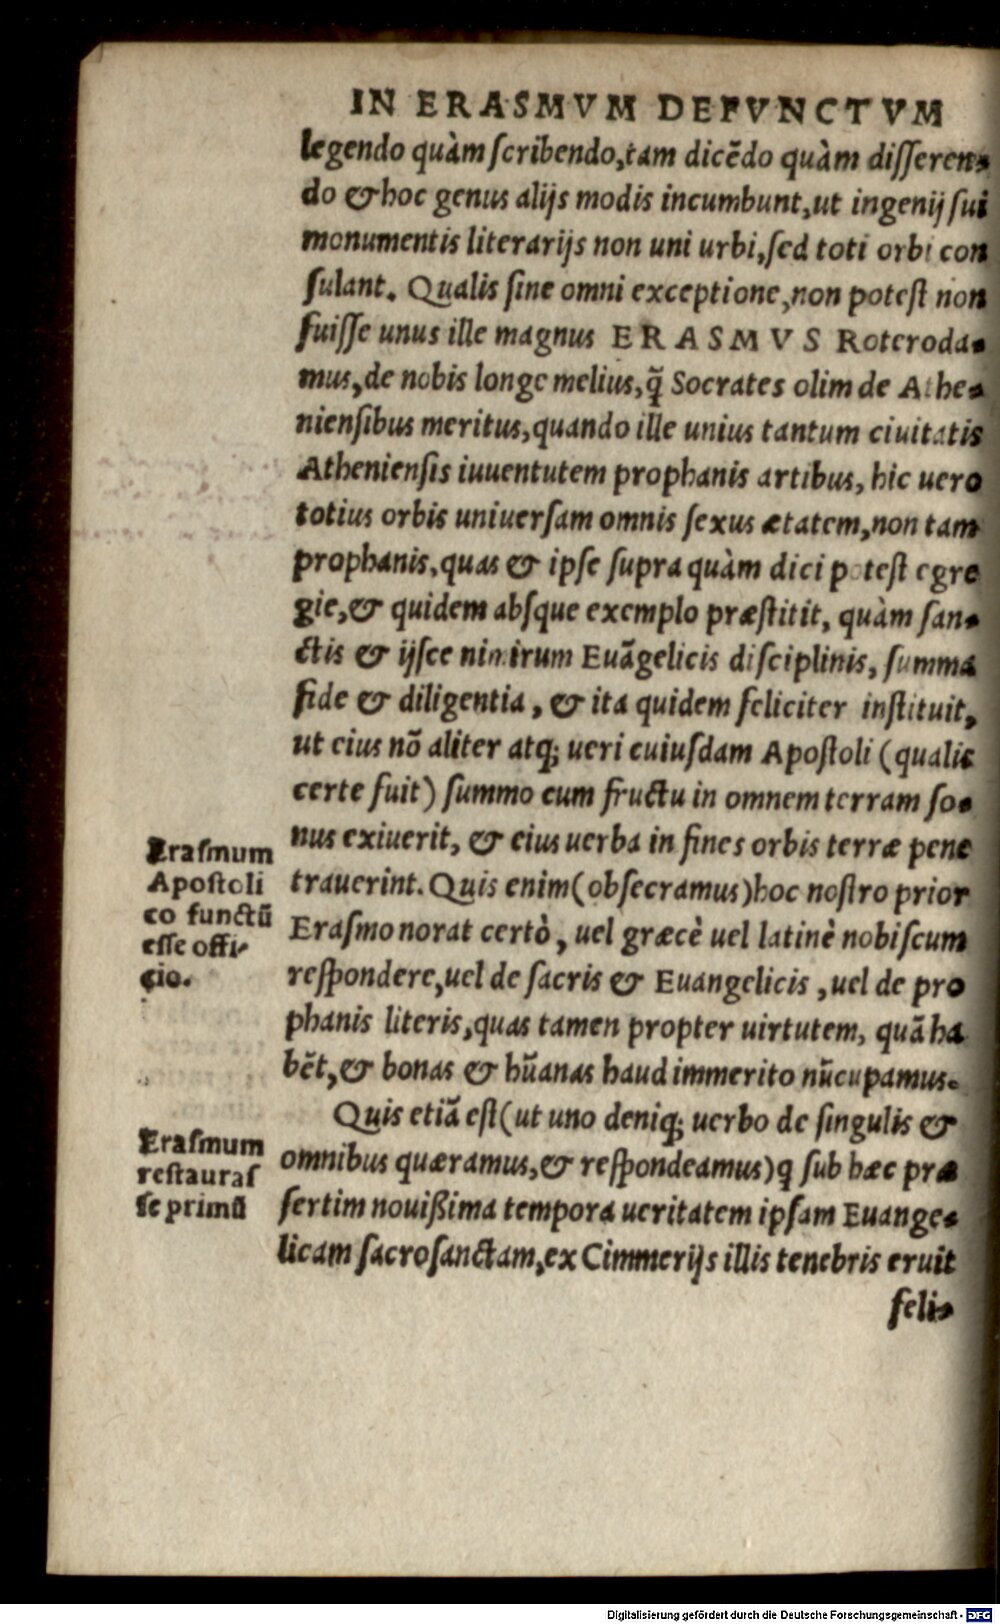 IN ERASMVM DEFVNCTVM
legendo quàm ſcribendo, tam dicẽdo quàm diſſeren-
do & hoc genus alijs modis incumbunt, ut ingenij ſui
monumentis literarijs non uni urbi, ſed toti orbi con
ſulant. Qualis ſine omni exceptione, non poteſt non
fuiſſe unus ille magnus ERASMVS Roteroda-
mus, de nobis longe melius, q̃ Socrates olim de Athe-
nienſibus meritus, quando ille unius tantum ciuitatis
Athenienſis iuuentutem prophanis artibus, hic uero
totius orbis uniuerſam omnis ſexus ætatem, non tam
prophanis, quas & ipſe ſupra quàm dici poteſt egre
gie, & quidem abſque exemplo præſtitit, quàm ſan-
ctis & ijſce nimirum Euãgelicis diſciplinis, ſumma
fide & diligentia, & ita quidem feliciter inſtituit,
ut eius nõ aliter atq; ueri cuiuſdam Apoſtoli (qualis
certe fuit) ſummo cum fructu in omnem terram ſo-
nus exiuerit, & eius uerba in fines orbis terræ pene
trauerint. Quis enim (obſecramus) hoc noſtro prior
Eraſmo norat certò, uel græcè uel latinè nobiſcum
reſpondere, uel de ſacris & Euangelicis, uel de pro
phanis literis, quas tamen propter uirtutem, quã ha
bẽt, & bonas & hũanas haud immerito nũcupamus.
Quis etiã eſt (ut uno deniq; uerbo de ſingulis &
omnibus quæramus, & reſpondeamus) q ſub hæc præ
ſertim nouißima tempora ueritatem ipſam Euange-
licam ſacroſanctam, ex Cimmerijs illis tenebris eruit
feli-
Eraſmum
Apoſtoli
co functũ
eſſe offi-
cio.
Eraſmum
reſtauraſ
ſe primũ
Digitalisierung gefördert durch die Deutsche Forschungsgemeinschaft - DFG